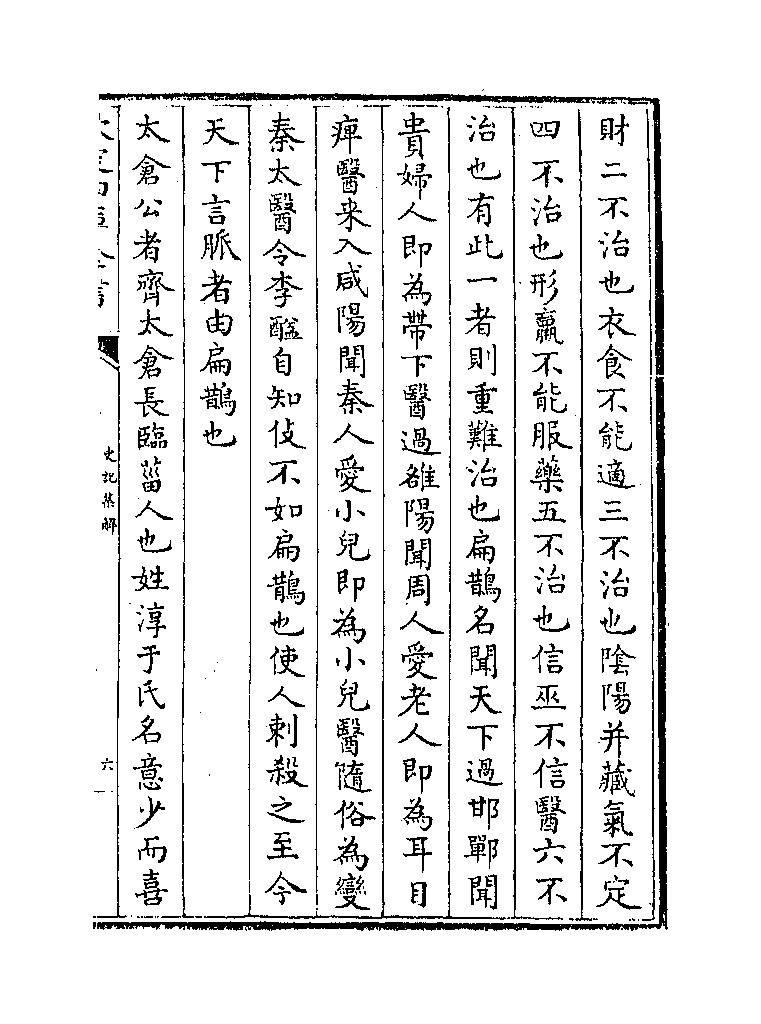 財二不治也衣食不能適三不治也陰陽并藏氣不定
四不治也形羸不能服藥五不治也信巫不信醫六不
治也有此一者則重難治也扁鵲名聞天下過邯鄲聞
貴婦人即為帶下醫過雒陽聞周人愛老人即為耳目
痺醫来入咸陽聞秦人愛小兒即為小兒醫隨俗為變
秦太醫令李醯自知伎不如扁鵲也使人刺殺之至今
天下言脈者由扁鵲也
太倉公者齊太倉長臨菑人也姓淳于氏名意少而喜
史記集解
六